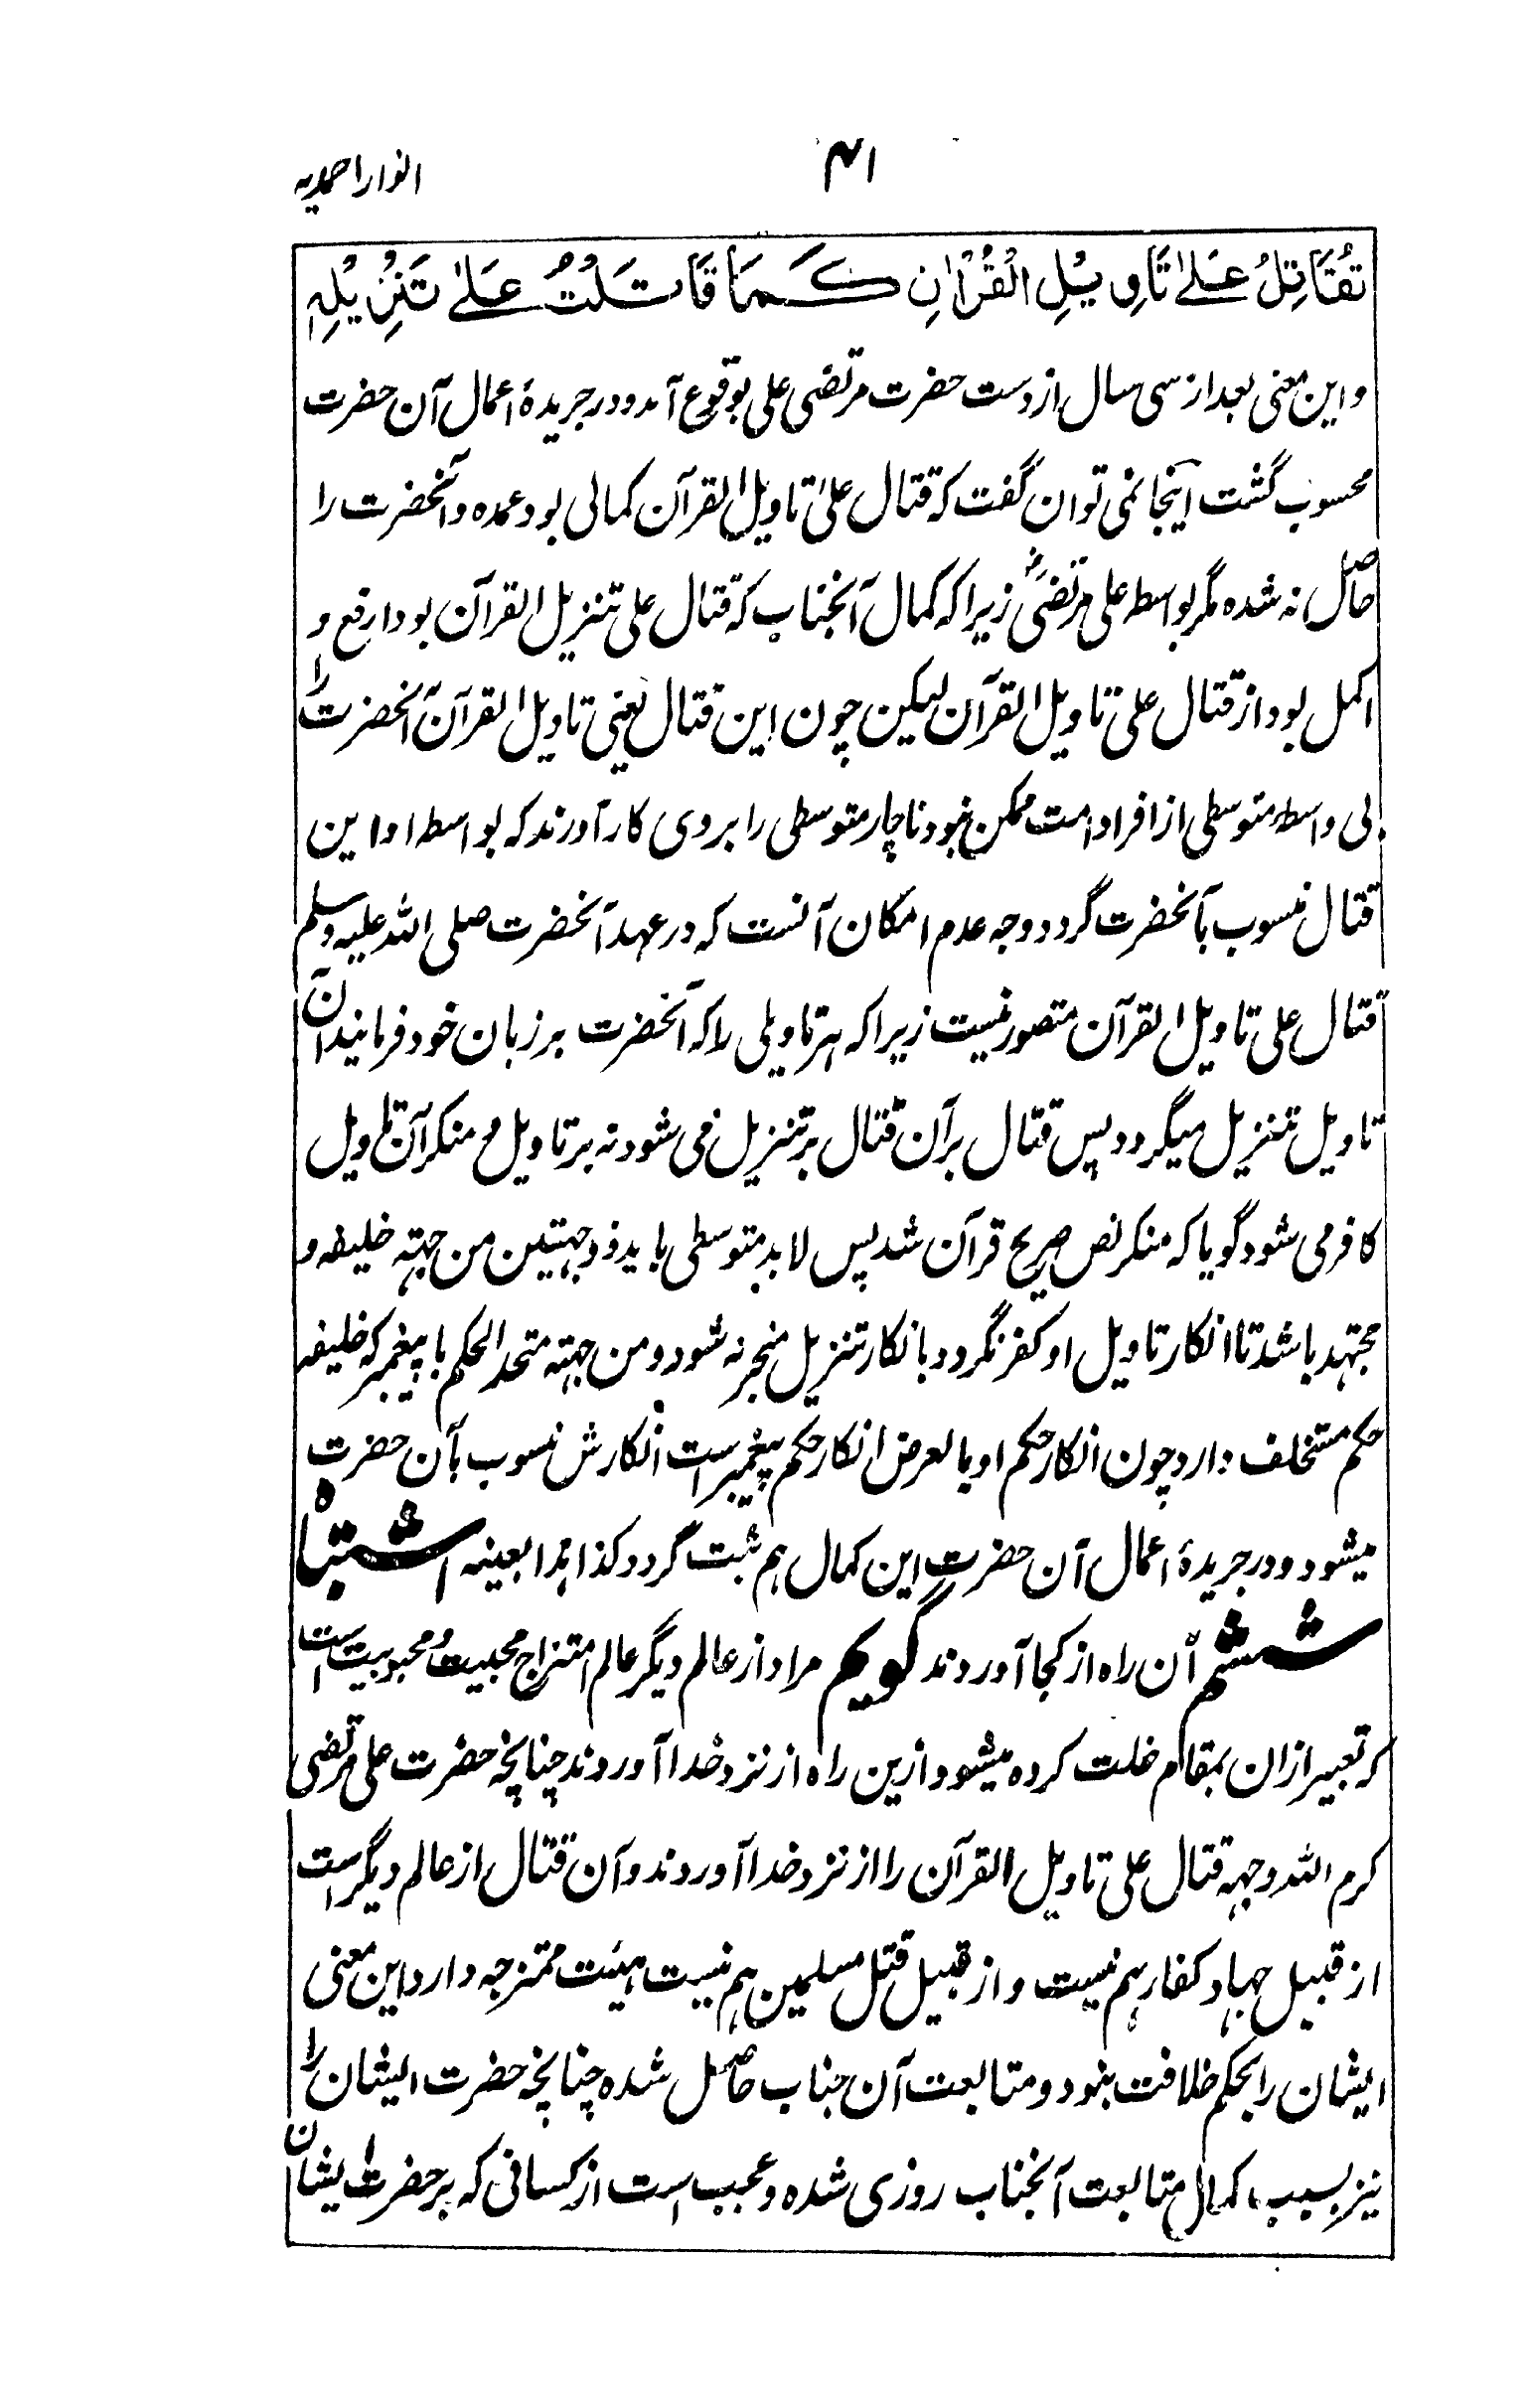 ۴۱
انوار احمدیہ
تُقَاتِلُ عَلٰى تَاوِيْلِ الْقُرْاٰنِ كَمَا قَاتَلْتُ عَلٰى تَنْزِيْلِهٖ
و این معنی بعد از سی سال از دست حضرت مرتضی علی بوقوع آمد و در جریدۀ اعمال آن حضرت
محسوب گشت اینجا نمی توان گفت که قتال علیٰ تاویل القرآن کمالی بود عمده و آنحضرت را
حاصل نه شده مگر بواسطه علی مرتضیؓ زیرا که کمال آنجناب که قتال علی تنزیل القرآن بود ارفع و
اکمل بود از قتال علی تاویل القرآن لیکن چون این قتال یعنی تاویل القرآن آنحضرت را
بی واسطه متوسطی از افراد امت ممکن نبود ناچار متوسطی را بروی کار آوردند که بواسطه او این
قتال منسوب بآنحضرت گردد و وجه عدم امکان آنست که در عهد آنحضرت صلی الله علیه وسلم
قتال علی تاویل القرآن متصور نیست زیرا که هر تاویلی را که آنحضرت بر زبان خود فرمایند آن
تاویل تنزیل میگردد پس قتال بر آن قتال بر تنزیل می شود نه بر تاویل و منکر آن تاویل
کافر می شود گویا که منکر نص صریح قرآن شد پس لابد متوسطی باید ذو جهتین من جهته خلیفه و
مجتهد باشد تا انکار تاویل او کفر نگردد و بانکار تنزیل منجر نه شود و من جهته متحد الحکم با پیغمبر که خلیفه
حکم مستخلف دارد چون انکار حکم او بالعرض انکار حکم پیغمبر است انکارش منسوب بآن حضرت
میشود و در جریدۀ اعمال آن حضرت این کمال هم ثبت گردد کذا هذا بعینه اشتباه
ششم آن راه از کجا آوردند گویم مراد از عالم دیگر عالم امتزاج محبیت و محبوبیت است
که تعبیر ازان بمقام خلت کرده میشود و ازین راه از نزد خدا آوردند چنانچه حضرت علی مرتضی
کرم الله وجهه قتال علی تاویل القرآن را از نزد خدا آوردند و آن قتال از عالم دیگر است
از قبیل جهاد کفار هم نیست و از قبیل قتل مسلمین هم نیست هیئت ممتزجه دارد این معنی
ایشان را بحکم خلافت بنود و متابعت آن جناب حاصل شده چنانچه حضرت ایشان را
نیز بسبب کمال متابعت آنجناب روزی شده و عجب است از کسانی که بر حضرت ایشان